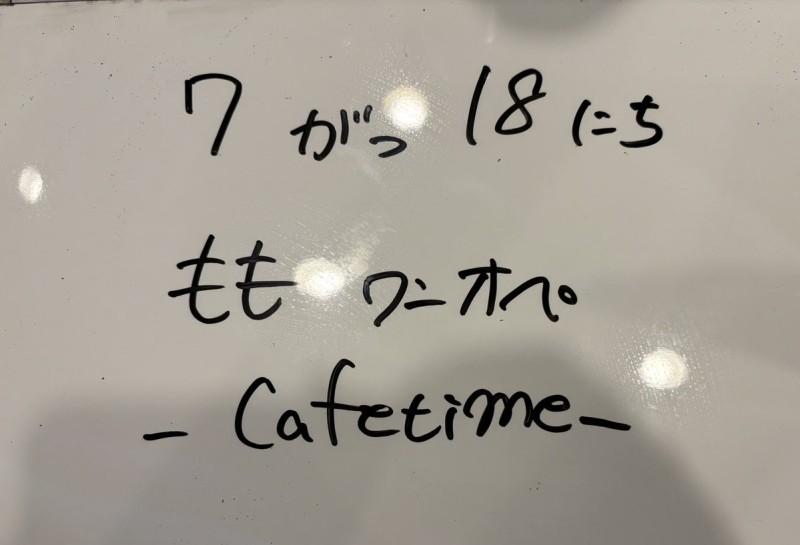 7 がつ 18 にち
もも ワンオペ
- Cafetime -